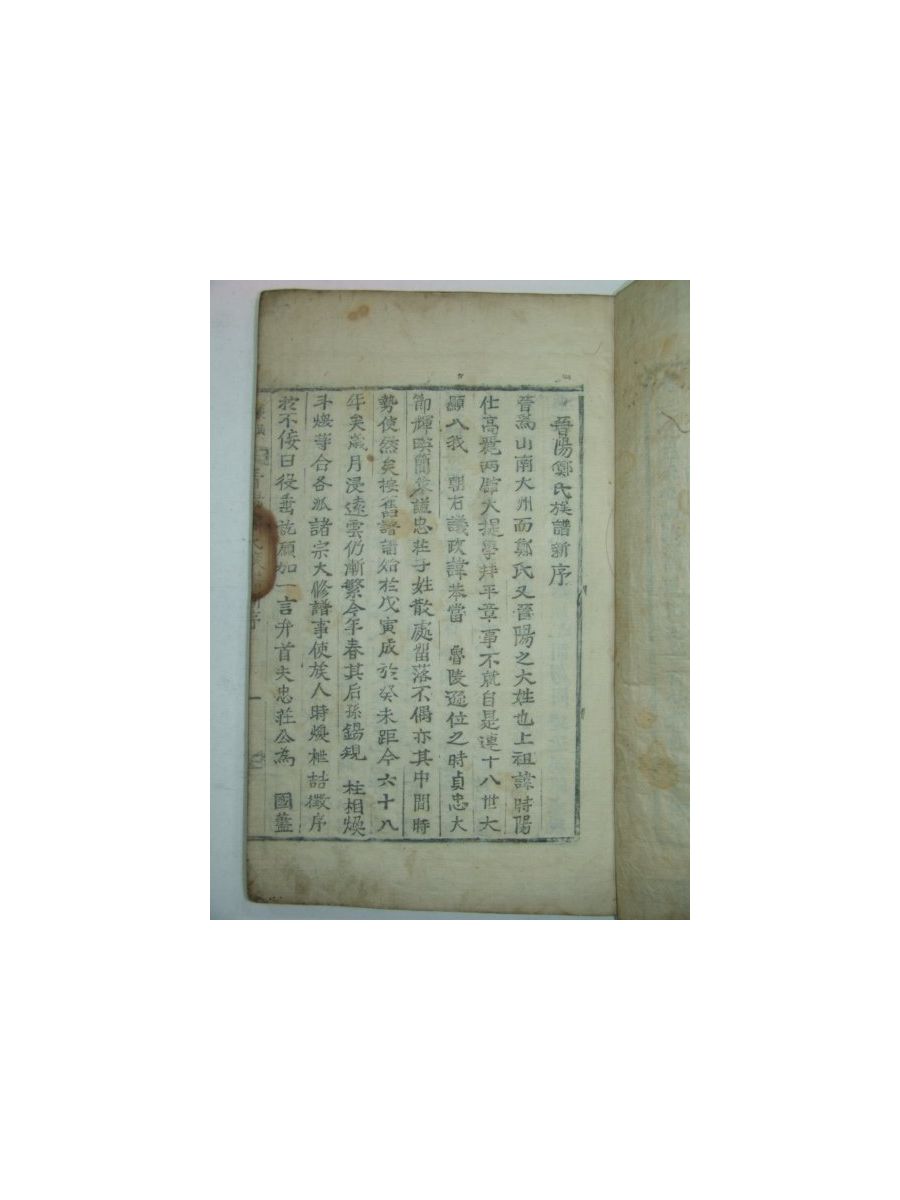 晉陽鄭氏族譜新序
晉爲山南大州而鄭氏又晉陽之大姓也上祖諱時陽
仕高麗両館大提學拜平章事不就自是連十八世大
顯入我 朝右議政諱苯當 魯陵遜位之時貞忠大
節輝暎簡策諡忠莊子姓散處留落不偶亦其中間時
勢使然矣按舊譜譜始於戊寅成於癸未距今六十八
年矣歲月浸遠雲仍漸繁今年春其后孫錫規 柱相煥
斗煥等合各派諸宗大修譜事使族人時煥 喆徵序
於不佞曰役垂訖願加一言弁首夫忠莊公為 國藎